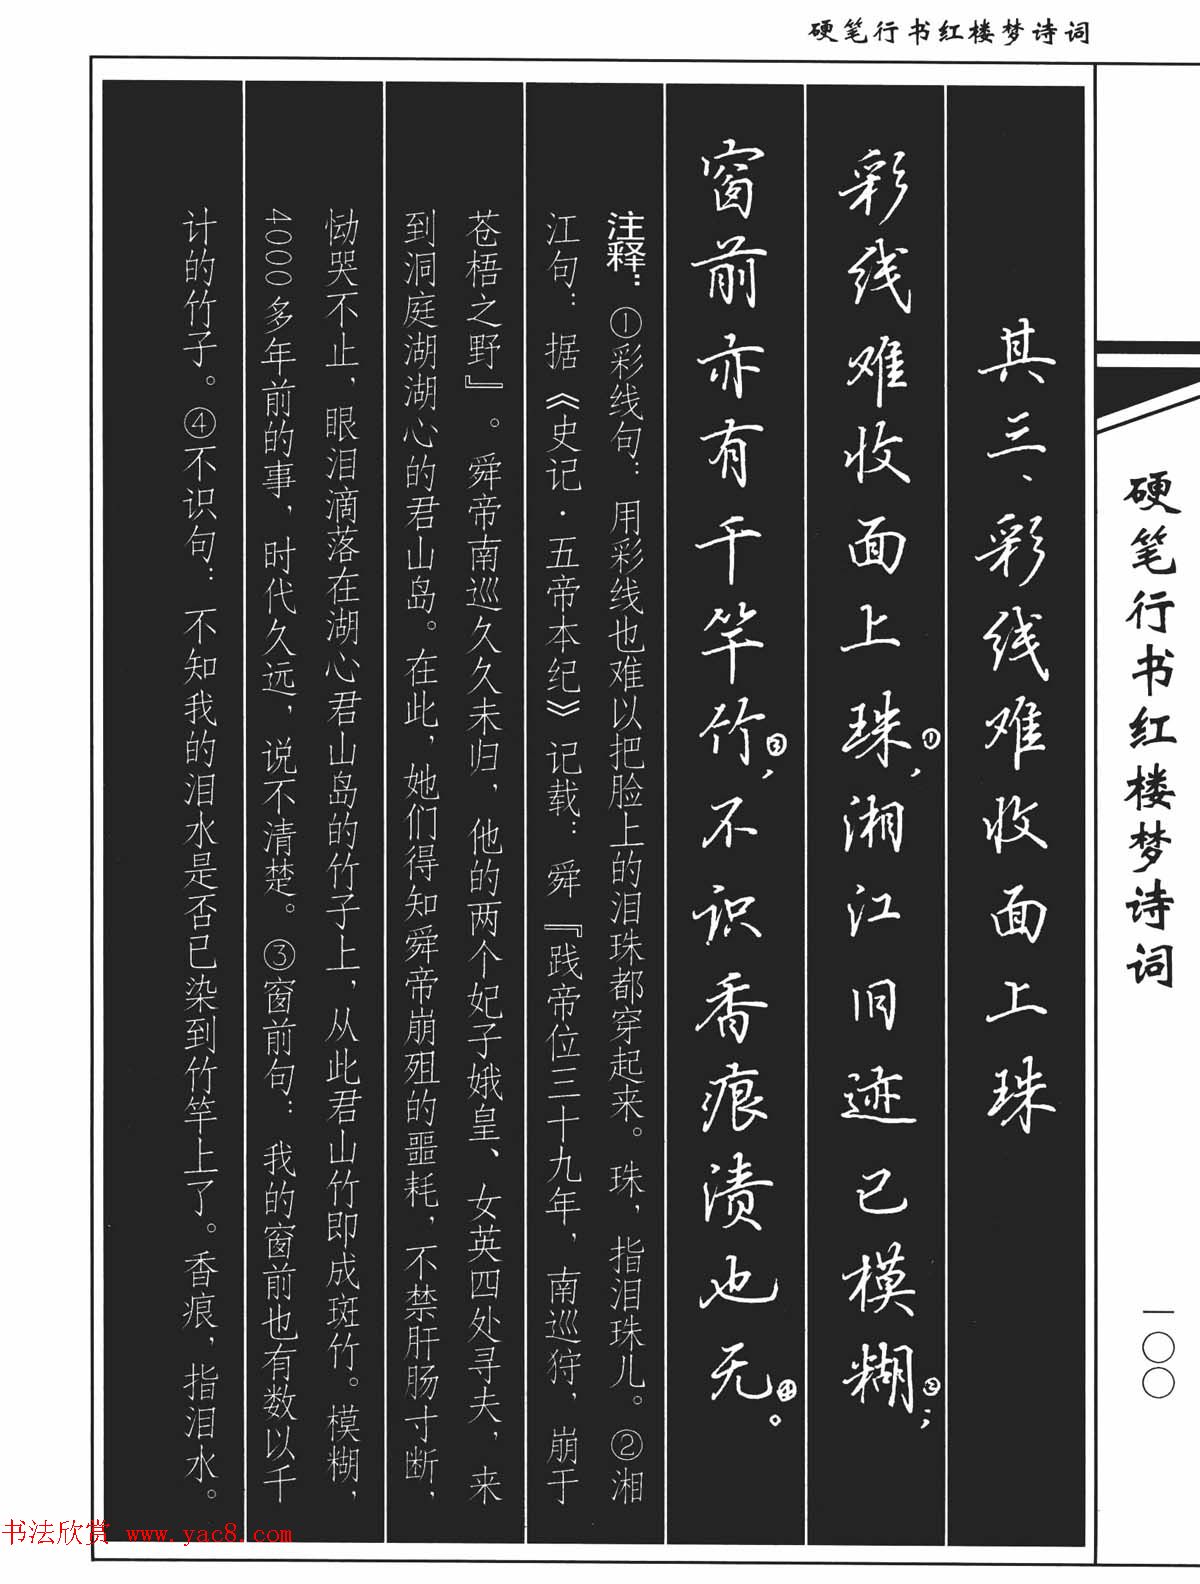 硬笔行书红楼梦诗词
硬笔行书红楼梦诗词
一〇〇
其三、彩线难收面上珠
彩线难收面上珠①，湘江旧迹已模糊②；
窗前亦有千竿竹③，不识香痕渍也无④。
注释：①彩线句：用彩线也难以把脸上的泪珠都穿起来。珠，指泪珠儿。②湘
江句：据《史记·五帝本纪》记载：舜『践帝位三十九年，南巡狩，崩于
苍梧之野』。舜帝南巡久久未归，他的两个妃子娥皇、女英四处寻夫，来
到洞庭湖湖心的君山岛。在此，她们得知舜帝崩殂的噩耗，不禁肝肠寸断，
恸哭不止，眼泪滴落在湖心君山岛的竹子上，从此君山竹即成斑竹。模糊，
4000多年前的事，时代久远，说不清楚。③窗前句：我的窗前也有数以千
计的竹子。④不识句：不知我的泪水是否已染到竹竿上了。香痕，指泪水。
书法欣赏 www.yac8.com